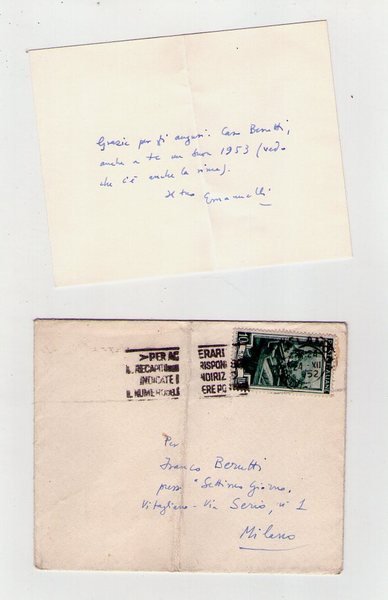 Grazie per gli auguri. Caro Berutti,
anche a te un buon 1953 (vedo
che c'è anche la rima).
Il tuo Emanuelli
PER AC
IL RECAPITO
INDICATE I
IL NUMERO DEL
ERARI
RISPON
NDIRIZ
ERE PO
10
24 - XII
52
Per
Franco Berutti
presso "Settimo Giorno"
Vitagliano - Via Serio, n 1
Milano